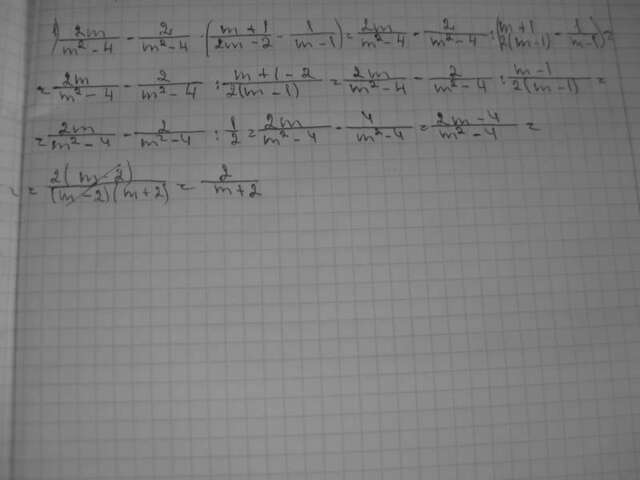 1) \frac{2m}{m^2-4} - \frac{2}{m^2-4} : \left(\frac{m+1}{2m-2} - \frac{1}{m-1}\right) = \frac{2m}{m^2-4} - \frac{2}{m^2-4} : \left(\frac{m+1}{2(m-1)} - \frac{1}{m-1}\right) =
= \frac{2m}{m^2-4} - \frac{2}{m^2-4} : \frac{m+1-2}{2(m-1)} = \frac{2m}{m^2-4} - \frac{2}{m^2-4} : \frac{m-1}{2(m-1)} =
= \frac{2m}{m^2-4} - \frac{2}{m^2-4} : \frac{1}{2} = \frac{2m}{m^2-4} - \frac{4}{m^2-4} = \frac{2m-4}{m^2-4} =
= \frac{2(m-2)}{(m-2)(m+2)} = \frac{2}{m+2}